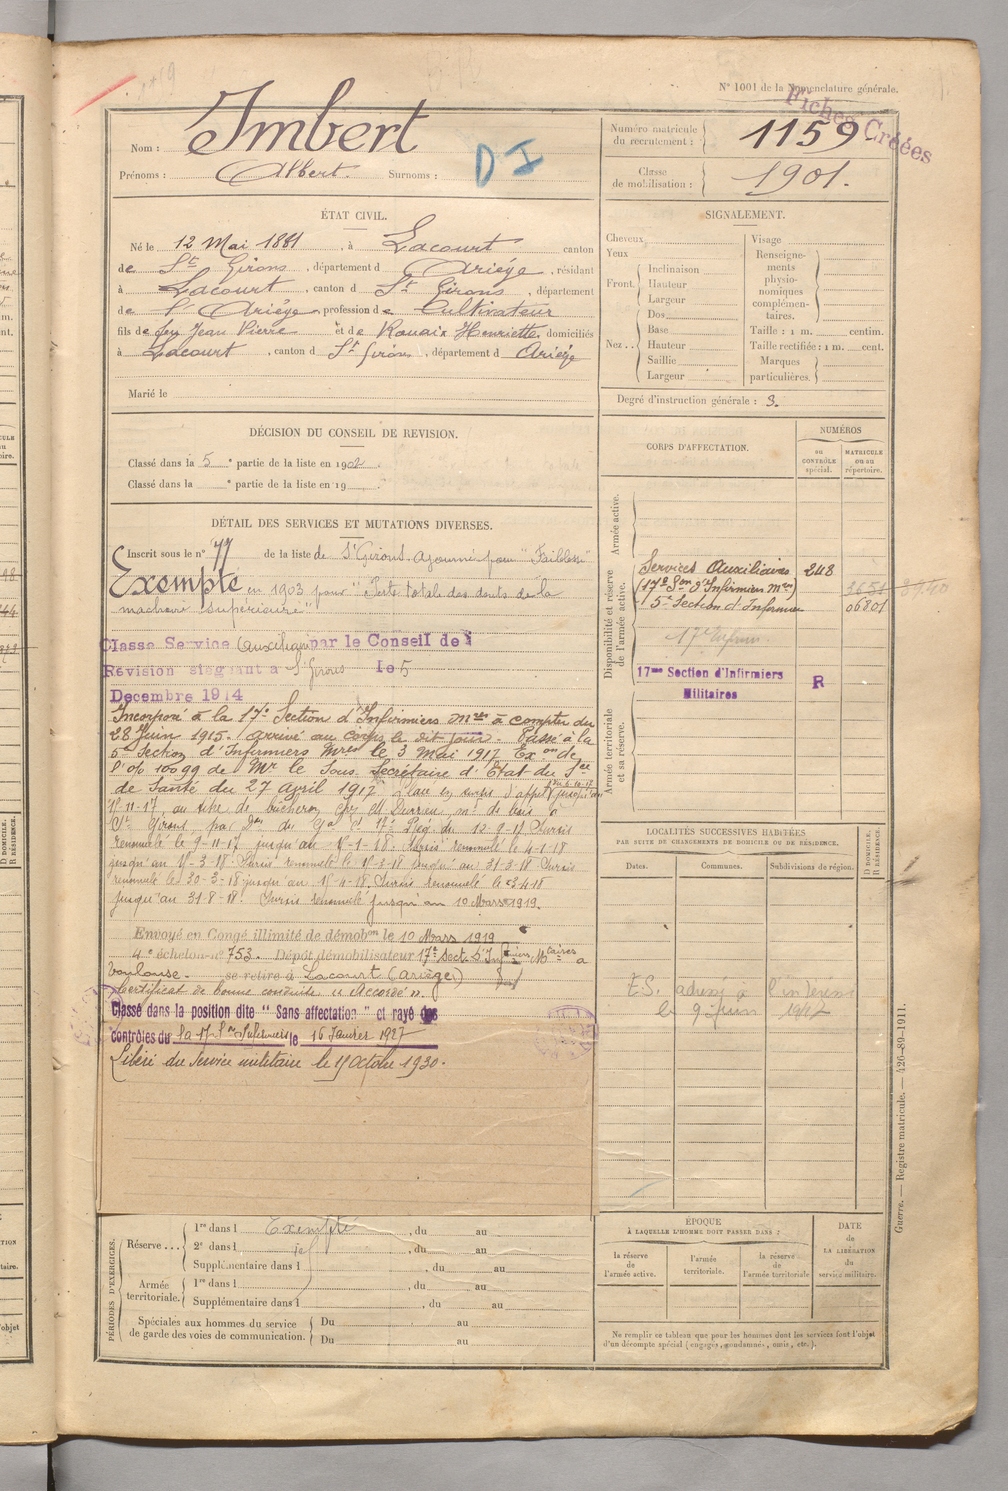 N° 1001 de la Nomenclature générale.
Fiches Créées
Nom : Imbert
Prénoms : Albert. Surnoms :
D I
Numéro matricule du recrutement : 1159
Classe de mobilisation : 1901.
ÉTAT CIVIL.
Né le 12 Mai 1881, à Lacourt canton
de St Girons, département d Ariège, résidant
à Lacourt, canton d St Girons, département
de l'Ariège profession de Cultivateur
fils de feu Jean Pierre et de Rouaix Henriette domiciliés
à Lacourt, canton d St Girons, département d Ariège
Marié le
SIGNALEMENT.
Cheveux
Yeux
Front. Inclinaison
Hauteur
Largeur
Nez .. Dos
Base
Hauteur
Saillie
Largeur
Visage
Renseignements physionomiques complémentaires.
Taille : 1 m. centim.
Taille rectifiée : 1 m. cent.
Marques particulières.
Degré d'instruction générale : 3.
DÉCISION DU CONSEIL DE REVISION.
Classé dans la 5e partie de la liste en 1902
Classé dans la e partie de la liste en 19
DÉTAIL DES SERVICES ET MUTATIONS DIVERSES.
Inscrit sous le n° 77 de la liste de St Girons. Ajourné pour "Faiblesse"
Exempté en 1903 pour "Perte totale des dents de la
machoire supérieure"
Classé Service Auxiliaire par le Conseil de
Révision siégeant à St Girons le 5
Decembre 1914
Incorporé à la 17e Section d'Infirmiers Mres à compter du
28 Juin 1915. Arrivé au corps le dit jour. Passé à la
5e Section d'Infirmiers Mres le 3 Mai 1917 Exon de
l'O/M 10099 de Mr le Sous Secrétaire d'Etat du Sce
de Santé du 27 Avril 1917
11-17 au titre de bûcheron
St Girons 12-9-17 Sursis
renouvelé le 9-11-17 jusqu'au 15-1-18. Sursis renouvelé le 4-1-18
jusqu'au 15-3-18. Sursis renouvelé le 15-3-18 jusqu'au 31-3-18 Sursis
renouvelé le 30-3-18 jusqu'au 15-4-18. Sursis renouvelé le
jusqu'au 31-8-18. Sursis renouvelé jusqu'au 10 Mars 1919.
Envoyé en Congé illimité de démobon le 10 Mars 1919
4e échelon n° 753. Dépôt démobilisateur 17e Sect. d'Infirmiers Mtaires à
Toulouse. se retire à Lacourt (Ariège)
Certificat de bonne conduite "Accordé".
Classé dans la position dite "Sans affectation" et rayé des
contrôles du la 17e Son Infirmiers le 16 Janvier 1927
Libéré du service militaire le 15 Octobre 1930.
CORPS D'AFFECTATION.
NUMÉROS
au CONTRÔLE spécial.
MATRICULE ou au répertoire.
Armée active.
Disponibilité et réserve de l'armée active.
Services Auxiliaires 248
17e Son d'Infirmiers Mres 3651
15e Section d'Infirmiers 06801
17e Infirm.
17me Section d'Infirmiers Militaires R
Armée territoriale et sa réserve.
LOCALITÉS SUCCESSIVES HABITÉES
PAR SUITE DE CHANGEMENTS DE DOMICILE OU DE RÉSIDENCE.
Dates. Communes. Subdivisions de région. D DOMICILE. R RÉSIDENCE.
E.S. adressé à l'intéressé
le 9 Juin 1927
PÉRIODES D'EXERCICES.
Réserve ... 1re dans l Exempté, du au
2e dans l id, du au
Supplémentaire dans l, du au
Armée territoriale. 1re dans l, du au
Supplémentaire dans l, du au
Spéciales aux hommes du service de garde des voies de communication. Du au
Du au
ÉPOQUE
À LAQUELLE L'HOMME DOIT PASSER DANS :
la réserve de l'armée active.
l'armée territoriale.
la réserve de l'armée territoriale
DATE de LA LIBÉRATION du service militaire.
Ne remplir ce tableau que pour les hommes dont les services font l'objet
d'un décompte spécial (engagés, condamnés, omis, etc.).
Guerre. — Registre matricule. — 426-89-1911.